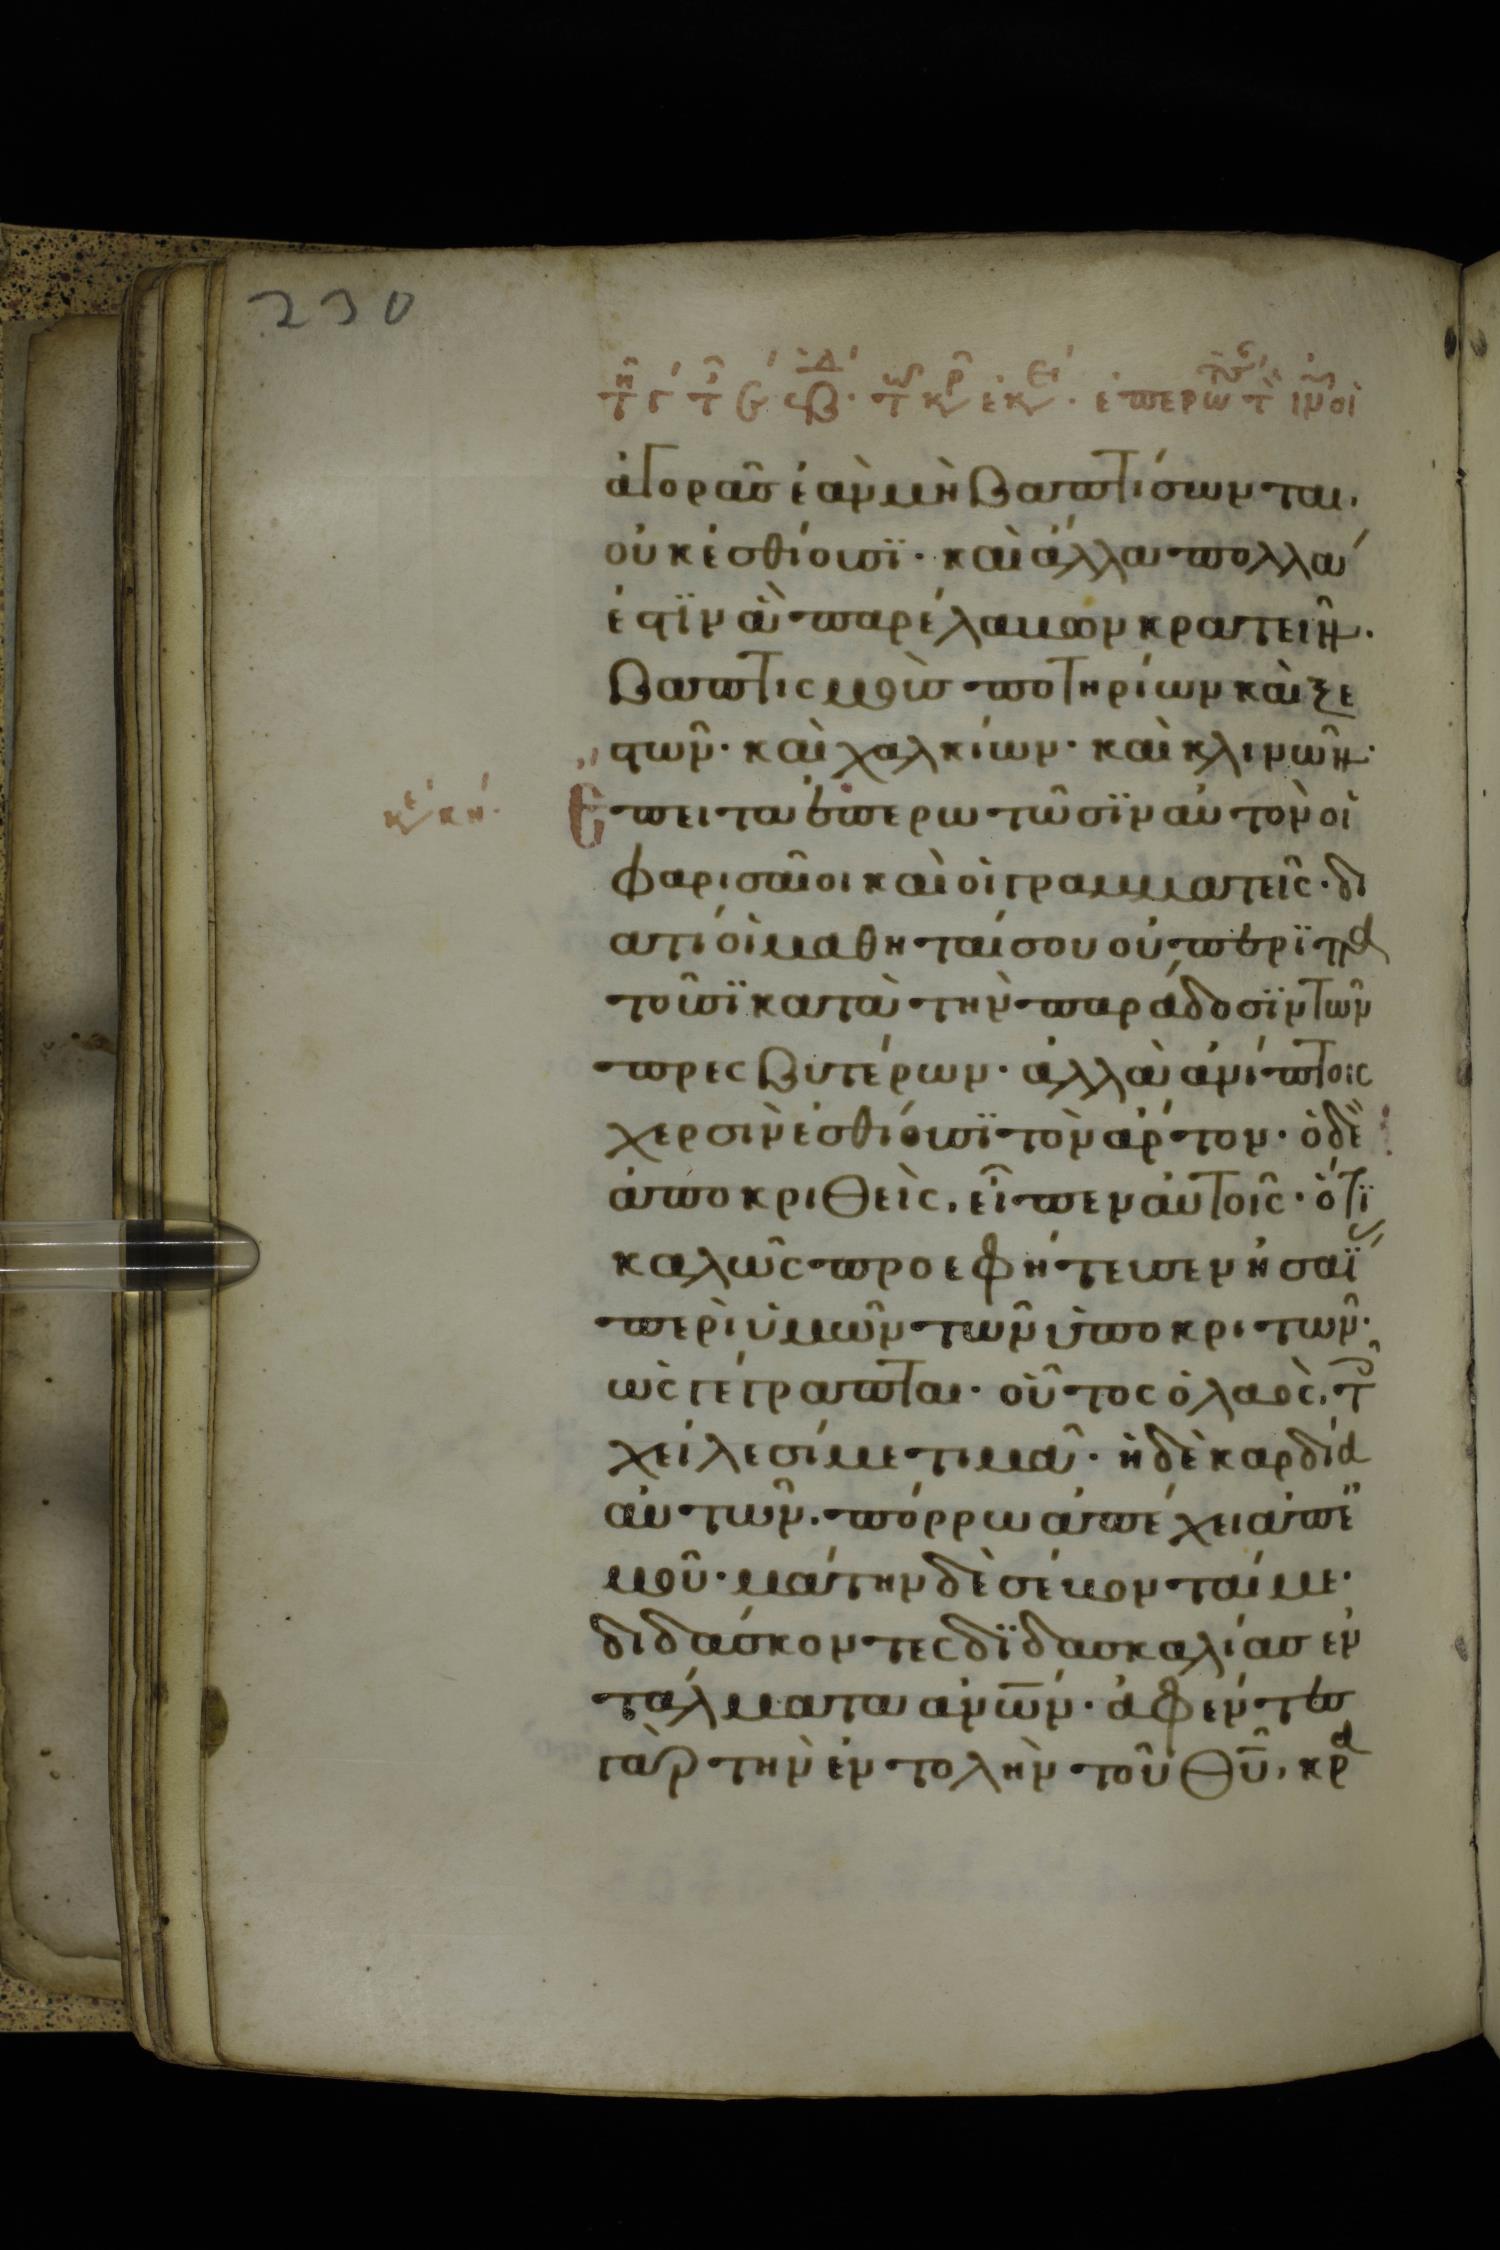 230
ἀγορᾶσ ἐὰν μὴ βαπτίσωνται,
οὐκ ἐσθίουσϊ· καὶ ἄλλα πολλά
ἐστϊν ἃ παρέλαβον κρατεῖν·
βαπτισμοὺσ ποτηρίων καὶ ξε
στῶν· καὶ χαλκίων· καὶ κλινῶν·
κε κη
Ἔπειτα ἐπερωτῶσϊν αὐτὸν οἱ
φαρισαῖοι καὶ οἱ γραμματεῖς· δι
ατί οἱ μαθηταί σου οὐ περϊπα
τοῦσϊ κατὰ τὴν παράδοσϊν τῶν
πρεσβυτέρων· ἀλλὰ ἀνίπτοις
χερσὶν ἐσθίουσϊ τὸν ἄρτον· ὁ δὲ
ἀποκριθεὶς, εἶπεν αὐτοῖς· ὅτϊ
καλῶς προεφήτευσεν ἡσαΐ
περὶ ὑμῶν τῶν ὑποκριτῶν·
ὡς γέγραπται· οὗτος ὁ λαὸς, τ
χείλεσί με τιμᾶ· ἡ δὲ καρδία
αὐτῶν· πόρρω ἀπέχει ἀπ ἐ
μοῦ· μάτην δὲ σέβονταί με·
διδάσκοντες δϊδασκαλίασ ἐν
τάλματα ἀνων· ἀφέντεσ
γὰρ τὴν ἐντολὴν τοῦ θυ, κρα